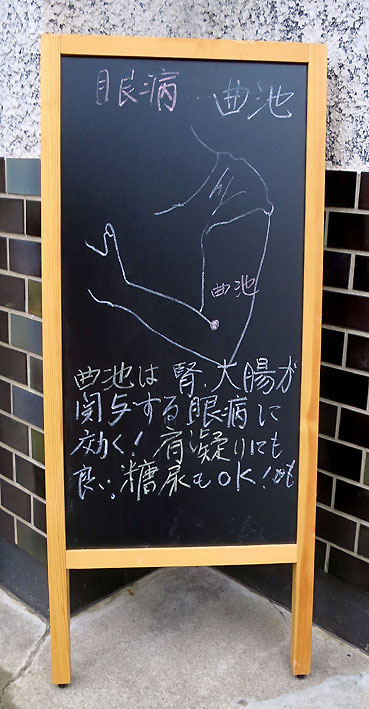 眼病…曲池
曲池
曲池は腎、大腸が
関与する眼病に
効く！肩凝りにも
良い。糖尿もOK！かも